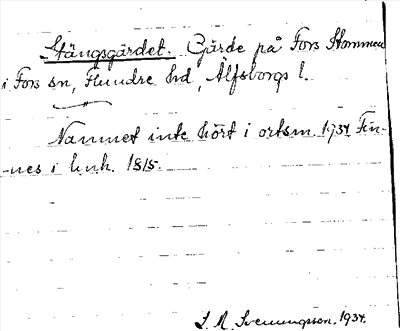 Stängsgärdet. Gärde på Fors Stommen
i Fors sn, Flundre hd, Älfsborgs l.
Namnet inte hört i ortsm. 1934. Fin-
-nes i lmh. 1815.
S. A. Svenungsson. 1934.